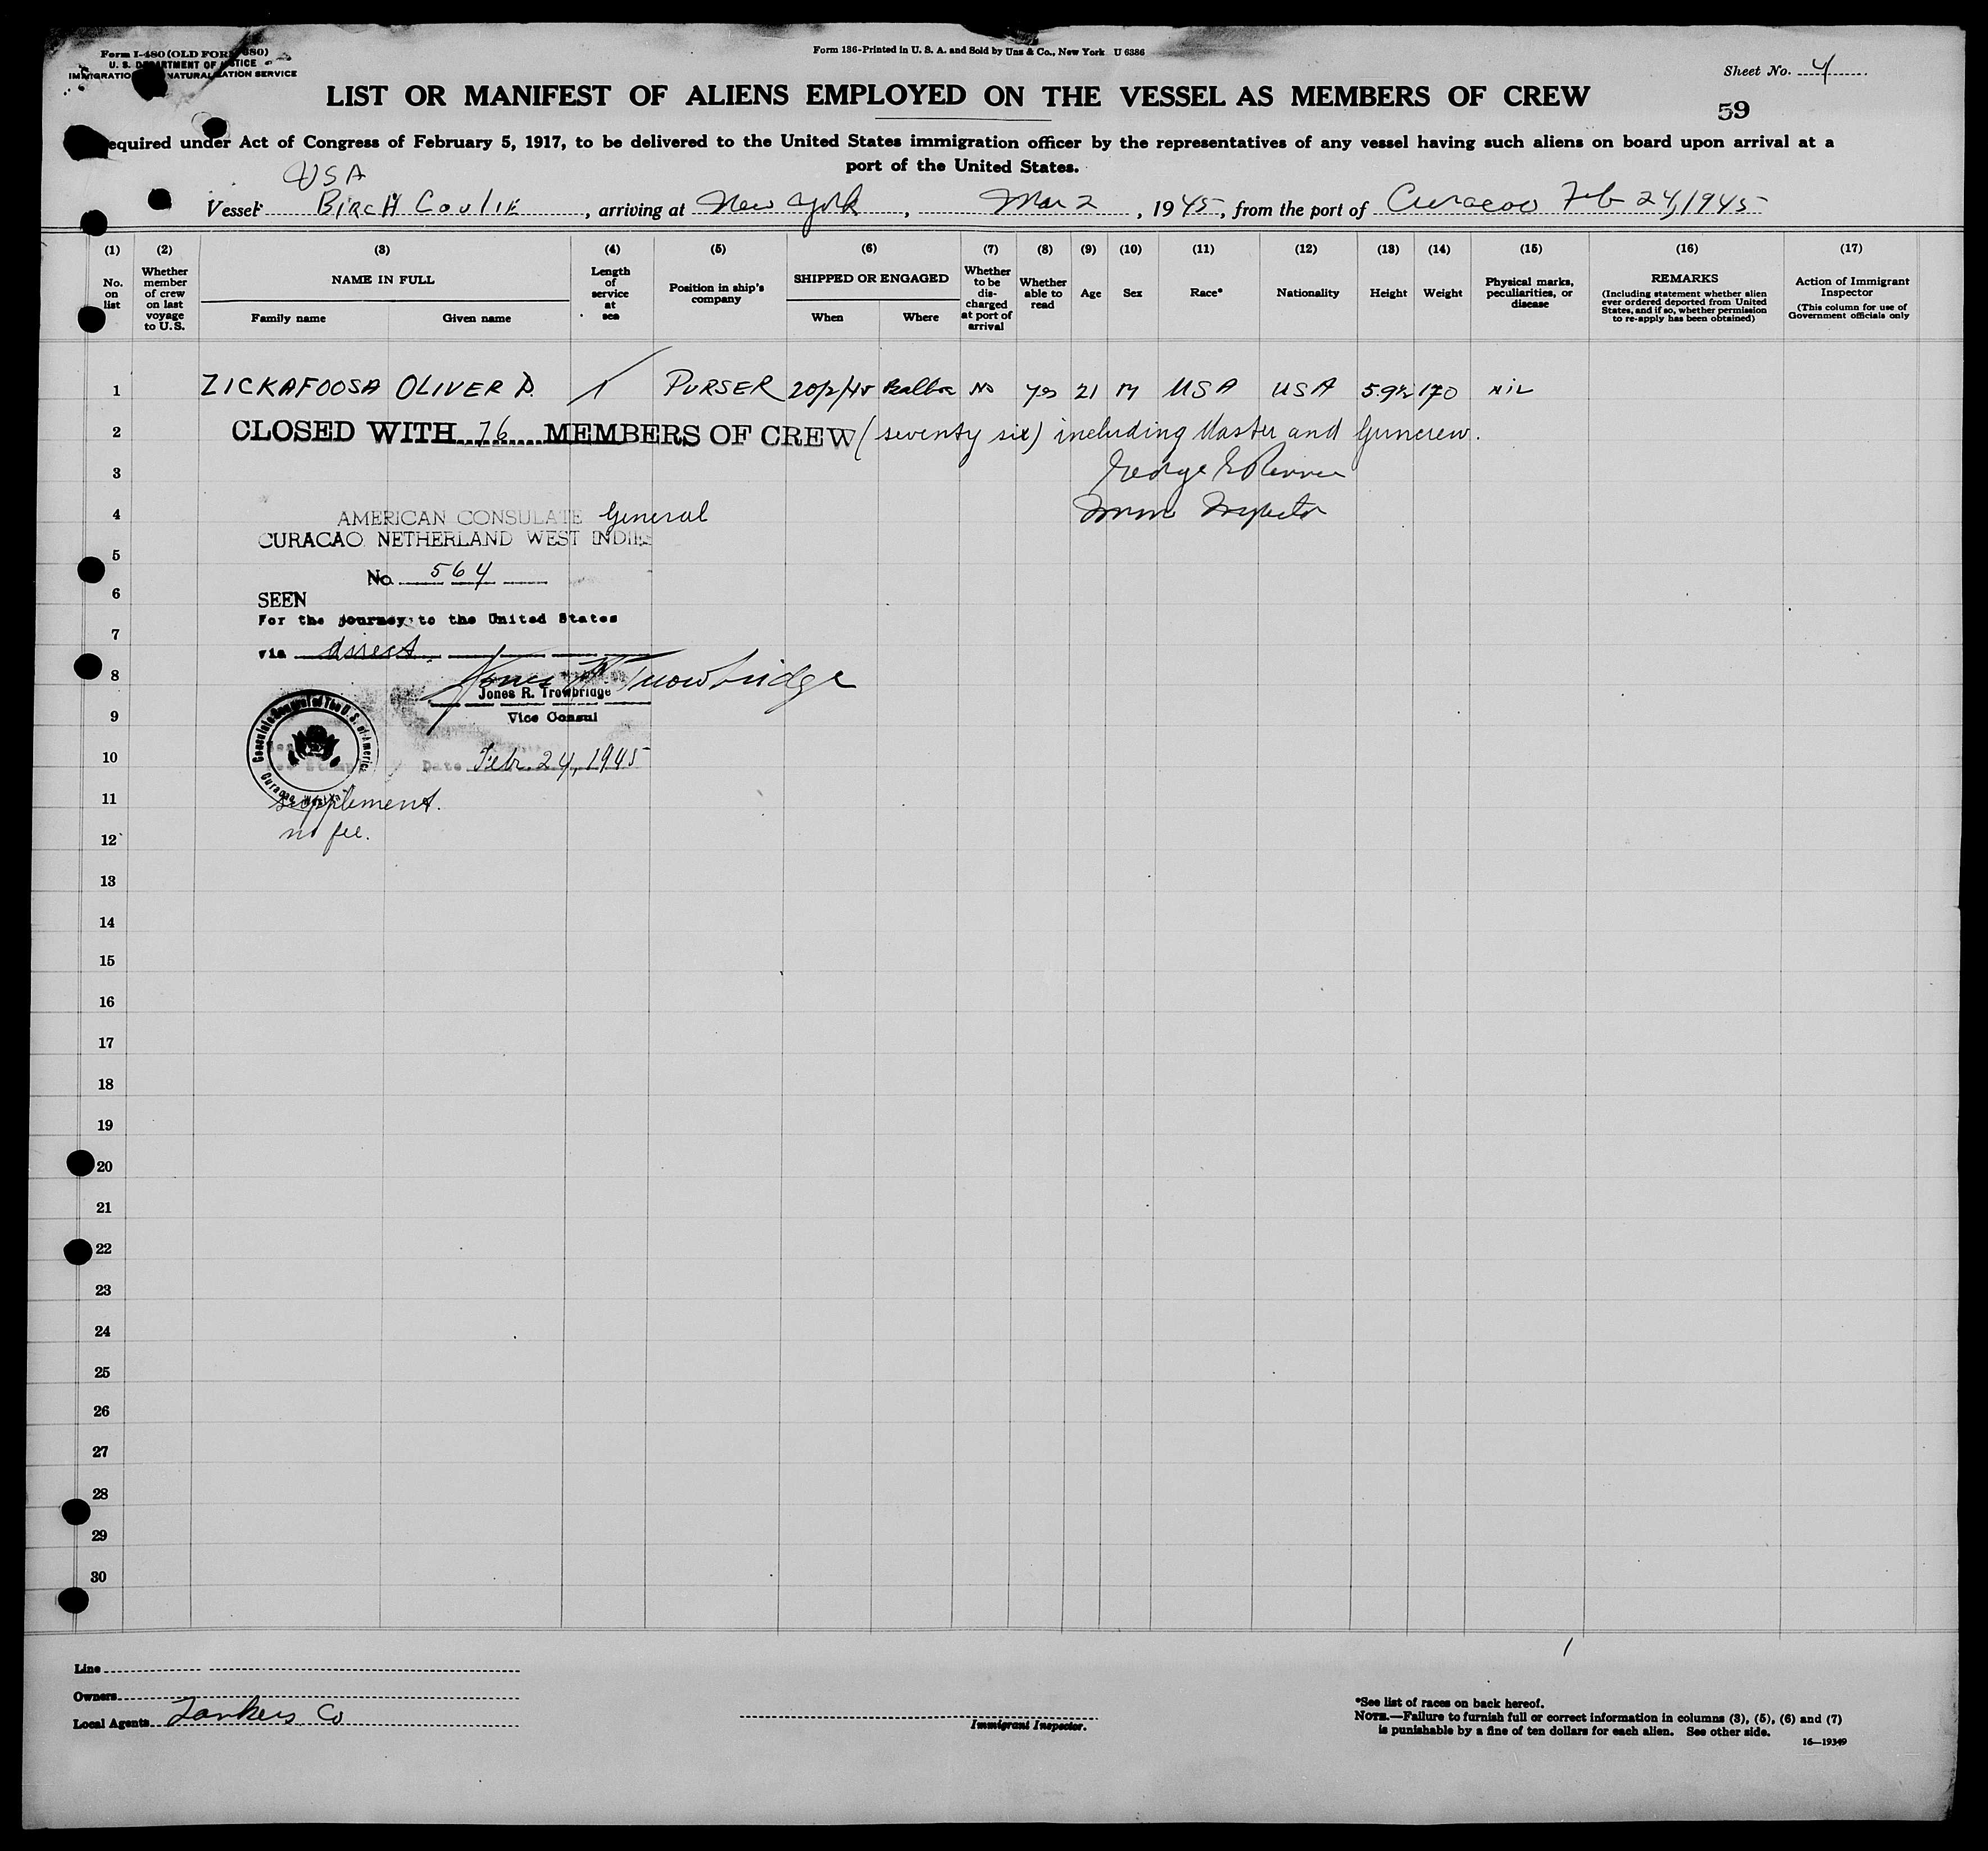 Form I-480 (OLD FORM 680)
U. S. DEPARTMENT OF JUSTICE
IMMIGRATION NATURALIZATION SERVICE
Form 136-Printed in U. S. A. and Sold by Unz & Co., New York U 6386
Sheet No. 4
LIST OR MANIFEST OF ALIENS EMPLOYED ON THE VESSEL AS MEMBERS OF CREW
59
equired under Act of Congress of February 5, 1917, to be delivered to the United States immigration officer by the representatives of any vessel having such aliens on board upon arrival at a
port of the United States.
USA
Vessel BIRCH COULIE, arriving at New York, Mar 2, 1945, from the port of Curacao Feb 24, 1945
(1) (2) (3) (4) (5) (6) (7) (8) (9) (10) (11) (12) (13) (14) (15) (16) (17)
No. on list
Whether member of crew on last voyage to U.S.
NAME IN FULL
Family name Given name
Length of service at sea
Position in ship's company
SHIPPED OR ENGAGED
When Where
Whether to be discharged at port of arrival
Whether able to read
Age
Sex
Race*
Nationality
Height
Weight
Physical marks, peculiarities, or disease
REMARKS
(Including statement whether alien ever ordered deported from United States, and if so, whether permission to re-apply has been obtained)
Action of Immigrant Inspector
(This column for use of Government officials only
1 ZICKAFOOSA OLIVER D. 1 PURSER 20/2/45 Balboa No yes 21 M USA USA 5.9½ 170 NIL
2 CLOSED WITH 76 MEMBERS OF CREW (seventy six) including Master and Guncrew.
3 George
4 AMERICAN CONSULATE General Immn Inspector
CURACAO, NETHERLAND WEST INDIES
5
No. 564
6 SEEN
For the journey to the United States
7
via direct
8 Jones R. Trowbridge
Jones R. Trowbridge
9 Vice Consul
Consulate General of The U. S. of America
Curacao
10 Date Febr. 24, 1945
11 supplement.
12 no fee.
13
14
15
16
17
18
19
20
21
22
23
24
25
26
27
28
29
30
Line
Owners
Local Agents Tankers Co
Immigrant Inspector.
*See list of races on back hereof.
NOTE.—Failure to furnish full or correct information in columns (3), (5), (6) and (7)
is punishable by a fine of ten dollars for each alien. See other side.
16—19349